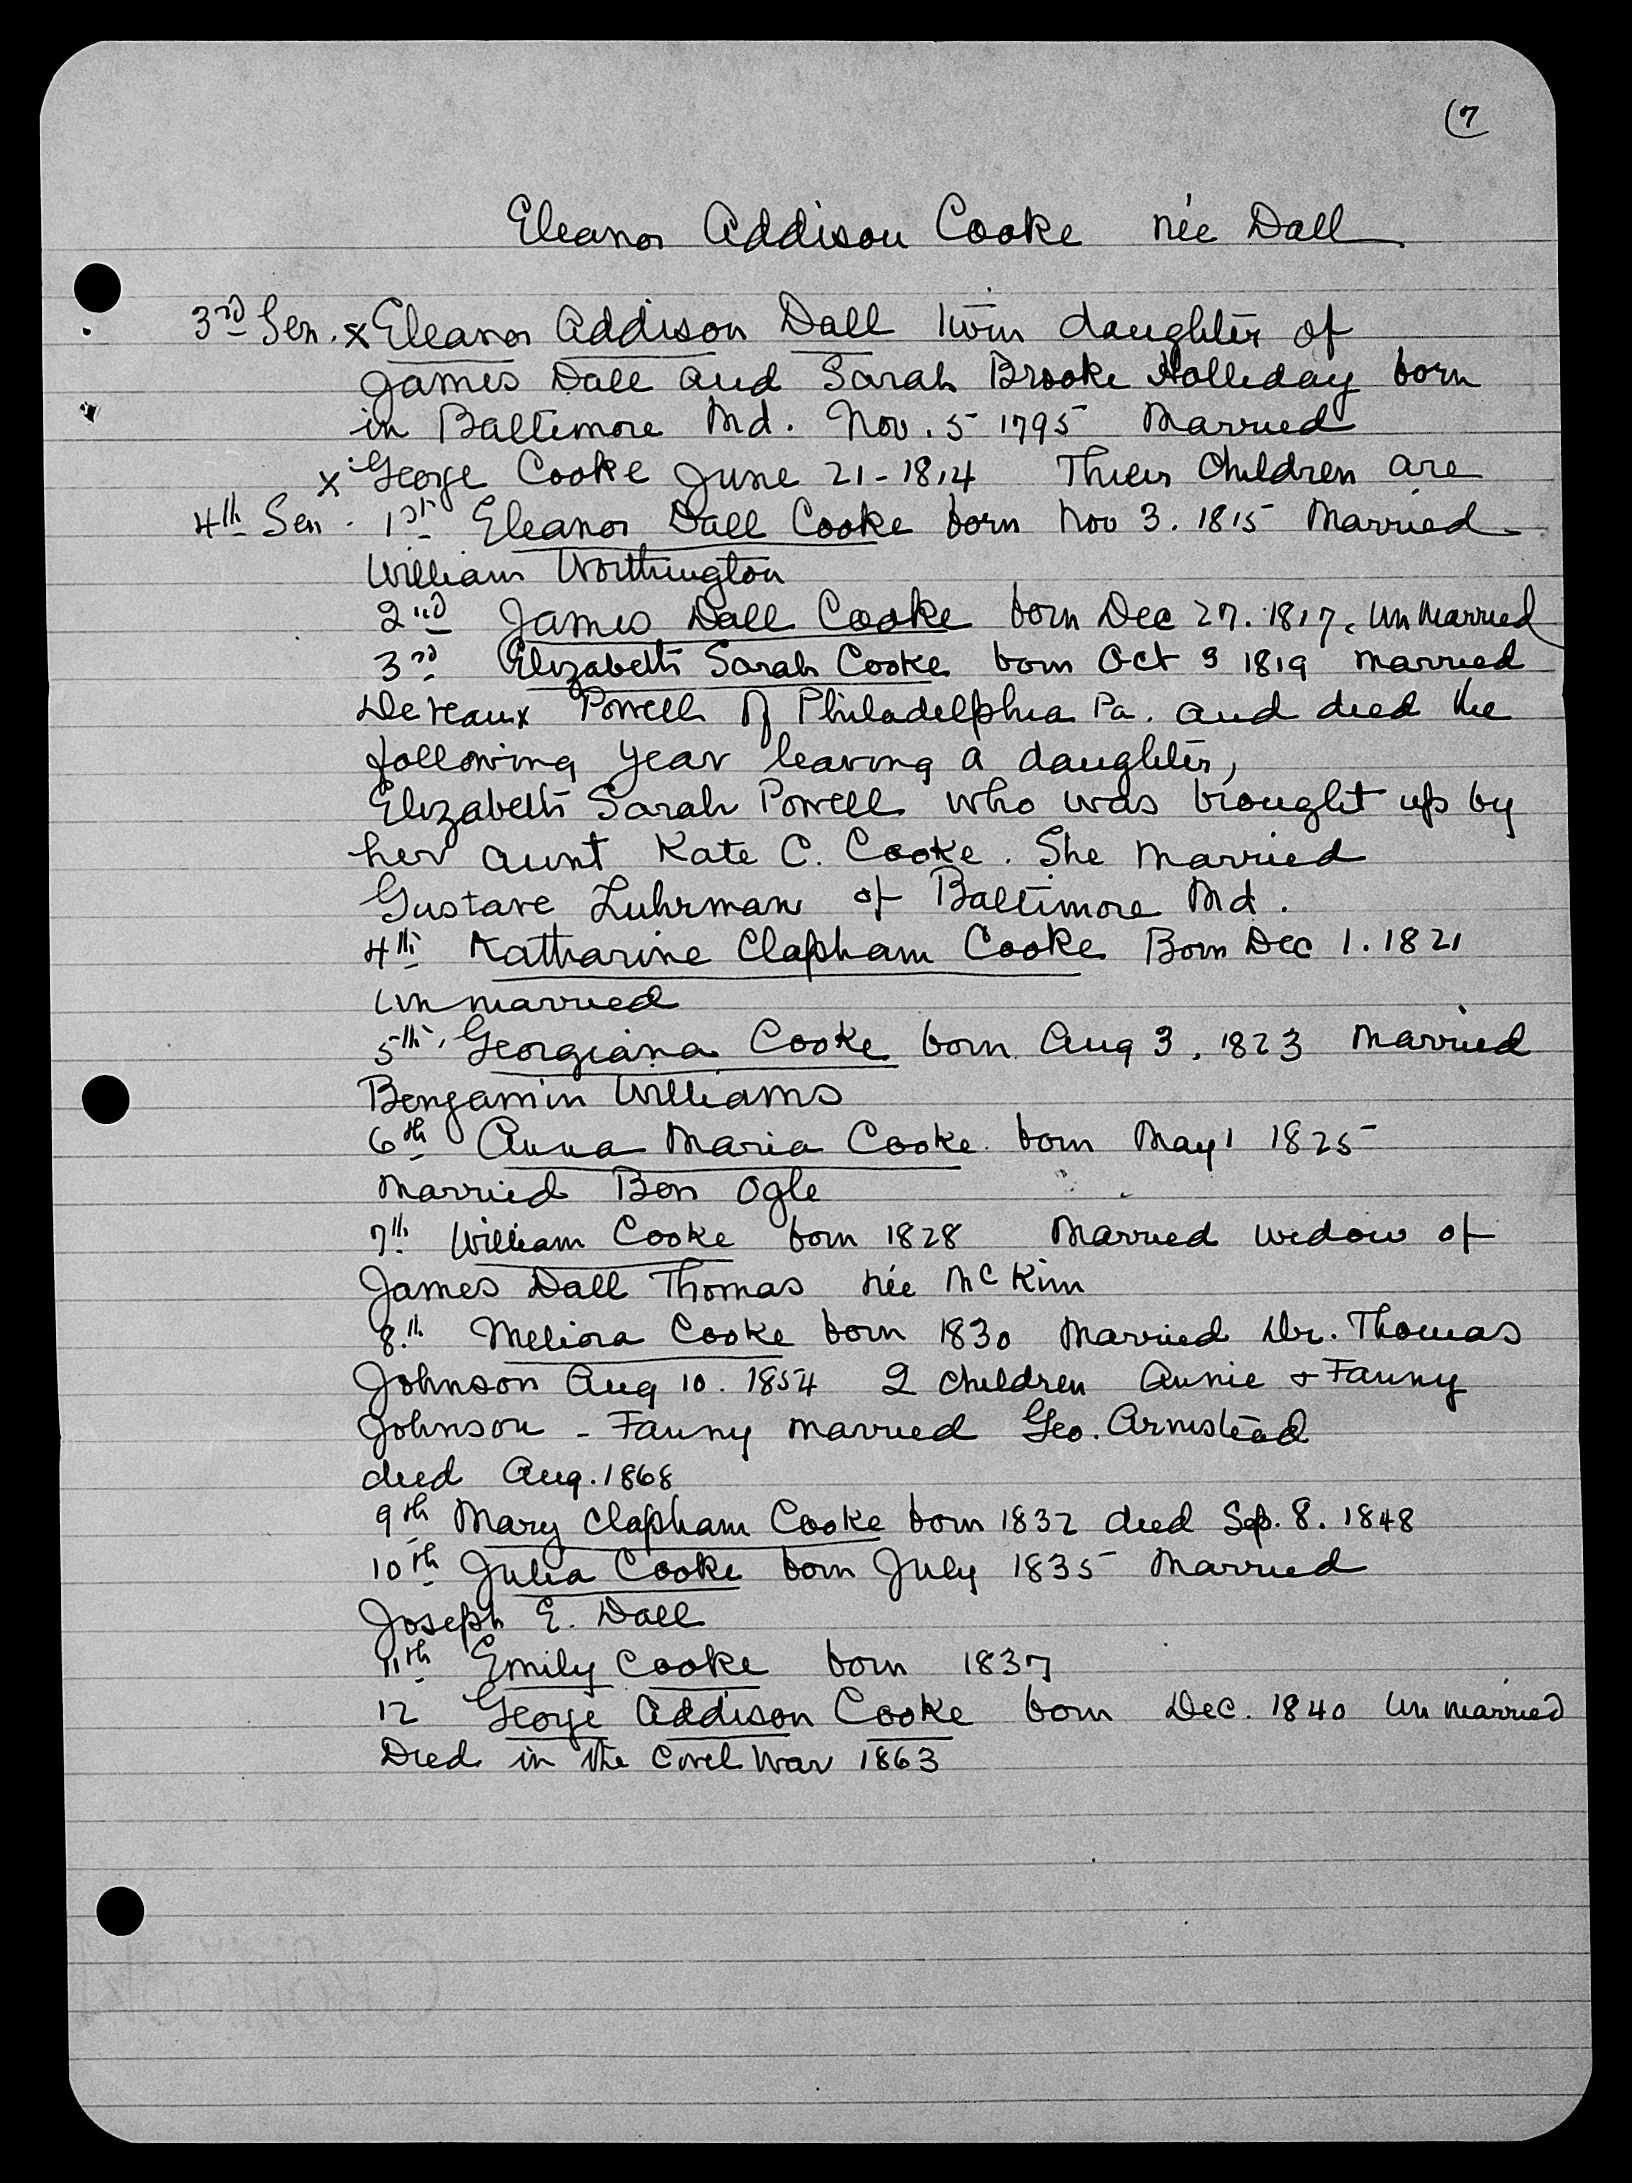 (7
Eleanor Addison Cooke née Dall
3rd Gen. x Eleanor Addison Dall twin daughter of
James Dall and Sarah Brooke Holliday born
in Baltimore Md. Nov. 5 1795 Married
x George Cooke June 21-1814 Thier Children are
4th Gen. 1st Eleanor Dall Cooke born Nov 3. 1815 Married
William Worthington
2nd James Dall Cooke born Dec 27. 1817. Unmarried
3rd Elizabeth Sarah Cooke born Oct 9 1819 married
DeVeaux Powell of Philadelphia Pa. and died the
following year leaving a daughter,
Elizabeth Sarah Powell who was brought up by
her aunt Kate C. Cooke. She married
Gustave Luhrman of Baltimore Md.
4th Katharine Clapham Cooke Born Dec 1. 1821
Unmarried
5th. Georgiana Cooke born Aug 3, 1823 Married
Benjamin Williams
6th Anna Maria Cooke born May 1 1825
Married Ben Ogle
7th William Cooke born 1828 Married widow of
James Dall Thomas née McKim
8th Meliora Cooke born 1830 Married Dr. Thomas
Johnson Aug 10. 1854 2 children Annie + Fanny
Johnson - Fanny married Geo. Armstead
died Aug. 1868
9th Mary Clapham Cooke born 1832 died Sep. 8. 1848
10th Julia Cooke born July 1835 Married
Joseph E. Dall
11th Emily Cooke born 1837
12 George Addison Cooke born Dec. 1840 Unmarried
Died in the Civil War 1863